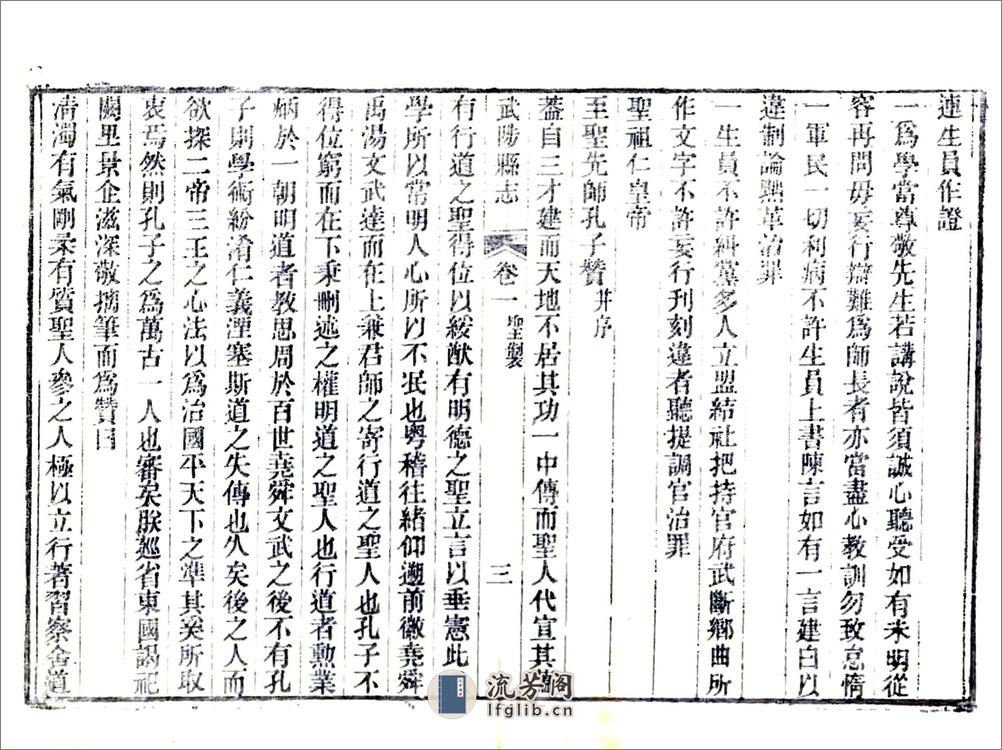 連生員作證
一爲學當尊敬先生若講說皆須誠心聽受如有未明從
容再問毋妄行辯難爲師長者亦當盡心教訓勿致怠惰
一軍民一切利病不許生員上書陳言如有一言建白以
違制論黜革治罪
一生員不許糾黨多人立盟結社把持官府武斷鄉曲所
作文字不許妄行刊刻違者聽提調官治罪
聖祖仁皇帝
至聖先師孔子贊并序
蓋自三才建而天地不居其功一中傳而聖人代宣其蘊
武陽縣志 卷一 聖製 三
有行道之聖得位以綏猷有明德之聖立言以垂憲此
學所以常明人心所以不泯也粵稽往緒仰遡前徽堯舜
禹湯文武達而在上兼君師之寄行道之聖人也孔子不
得位窮而在下秉刪述之權明道之聖人也行道者勲業
炳於一朝明道者教思周於百世堯舜文武之後不有孔
子則學術紛淆仁義湮塞斯道之失傳也久矣後之人而
欲探二帝三王之心法以爲治國平天下之準其奚所取
衷焉然則孔子之爲萬古一人也審矣朕廵省東國謁祀
闕里景企滋深敬摛筆而爲贊曰
清濁有氣剛柔有質聖人參之人極以立行著習察舍道
流芳阁
lfglib.cn